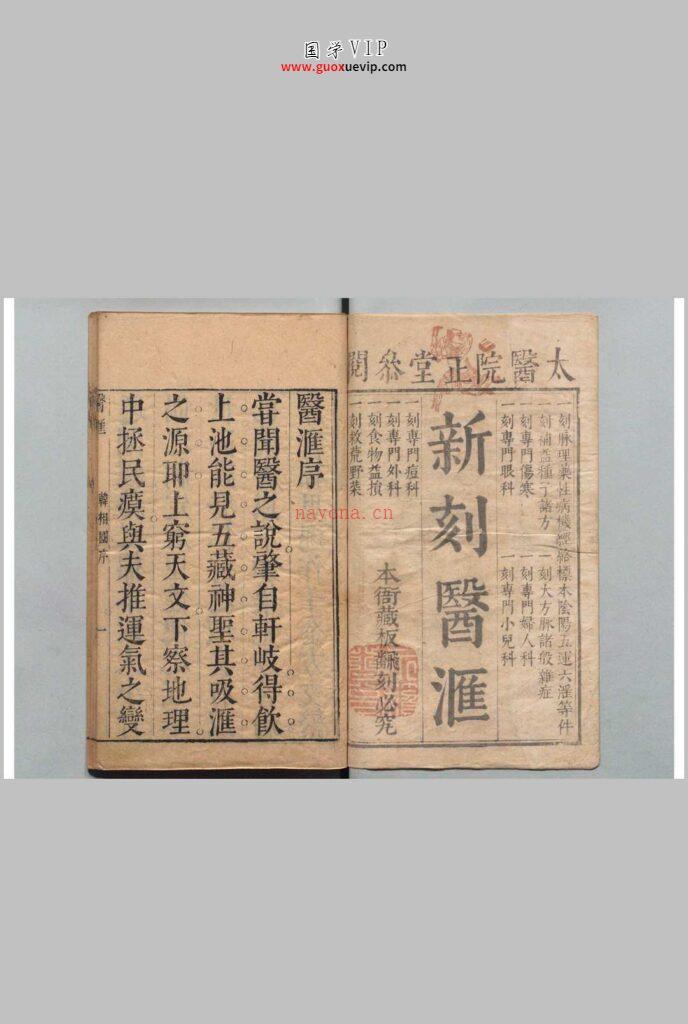 国学VIP
www.guoxuevip.com
太醫院正堂叅閱
一刻脉理藥性病機經絡標本陰陽五運六淫等件
一刻補益種子諸方
一刻大方脉諸般雜症
一刻專門傷寒
一刻專門婦人科
一刻專門眼科
一刻專門小兒科
新刻醫滙
一刻專門痘科
一刻專門外科
一刻食物益損
一刻救荒野菜
本衙藏板翻刻必究
醫滙序
甞聞醫之說肇自軒岐得飲
上池能見五藏神聖其吸滙
之源耶上窮天文下察地理
中拯民瘼與夫推運氣之變
醫滙
韓相國序
一
nayona.cn